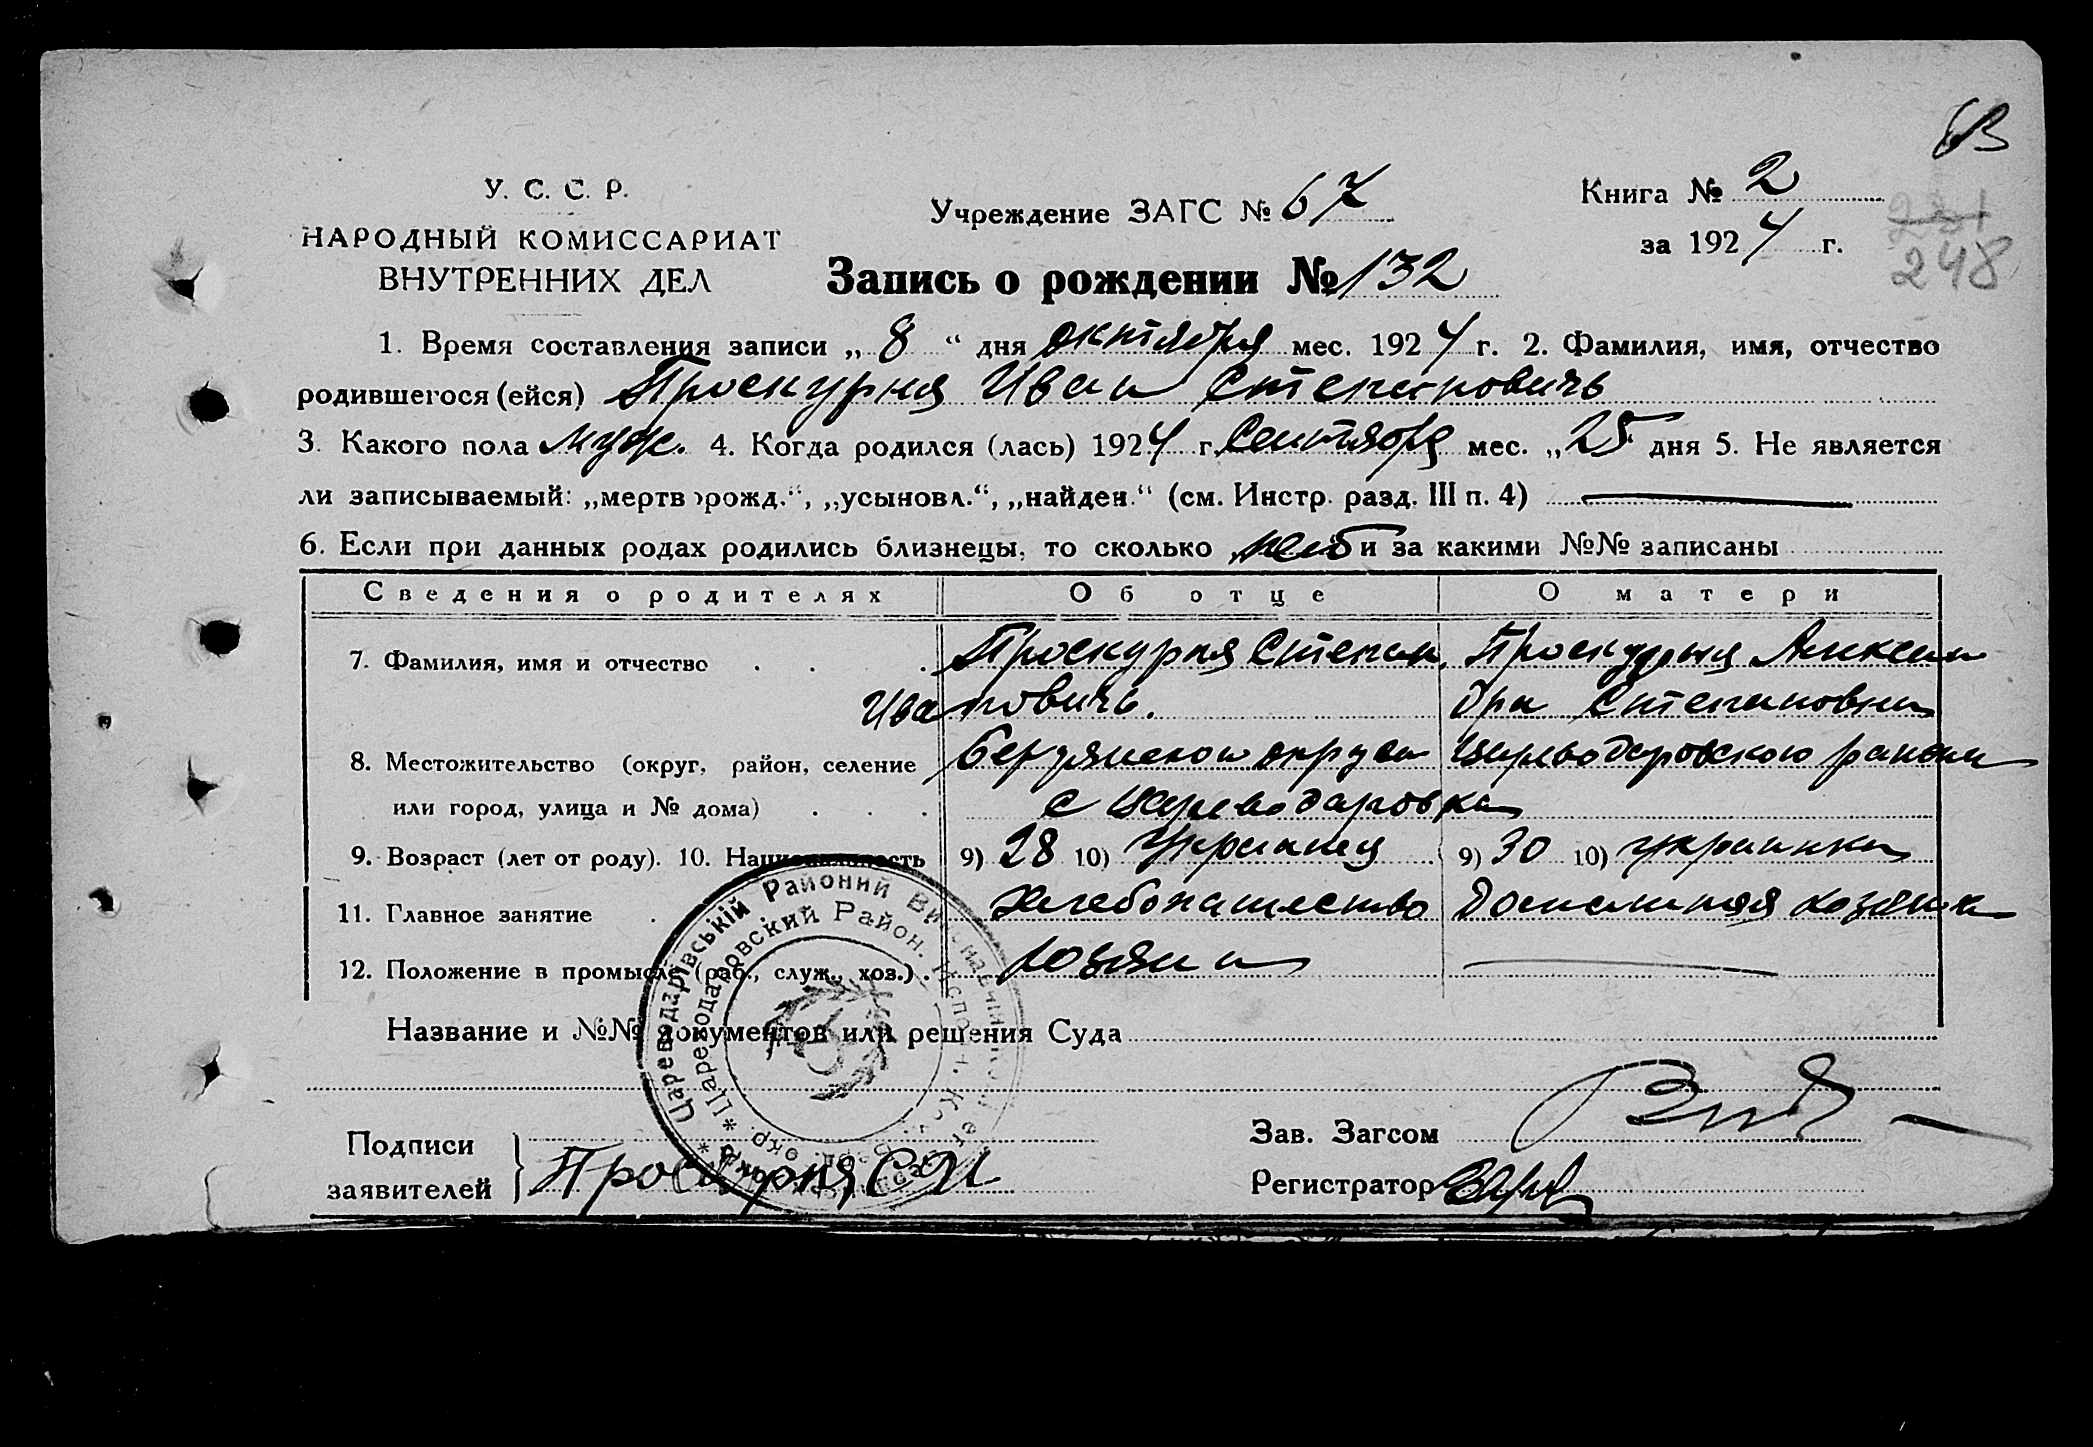 У. С. С. Р.
НАРОДНЫЙ КОМИССАРИАТ
ВНУТРЕННИХ ДЕЛ
Учреждение ЗАГС № 67
Книга № 2
за 1924 г.
231
248
Запись о рождении № 132
1. Время составления записи „ 8 “ дня октября мес. 1924 г. 2. Фамилия, имя, отчество
родившегося (ейся) Проскурня Иван Степановичь
3. Какого пола муж. 4. Когда родился (лась) 1924 г. Сентября мес. „ 25 дня 5. Не является
ли записываемый: „мертворожд.“, „усыновл.“, „найден.“ (см. Инстр. разд. III п. 4)
6. Если при данных родах родились близнецы, то сколько и за какими №№ записаны
Сведения о родителях Об отце О матери
7. Фамилия, имя и отчество . . . Проскурня Степан Проскурня Алексан
Ивановичь. дра Степановна
8. Местожительство (округ, район, селение Бердянского округа Цареводаровского района
или город, улица и № дома) . . . с Цареводаровка
9. Возраст (лет от роду). 10. Национальность 9) 28 10) Украинец 9) 30 10) украинка
11. Главное занятие . Хлебопашество Домашняя хозяйка
12. Положение в промысле (раб., служ., хоз.) . хозяин
Название и №№ документов или решения Суда
Цареводарівський Районий Виконавчий
Цареводаровский Район. Исполн. К.
Подписи
заявителей } Проскурня С И
Зав. Загсом
Регистратор